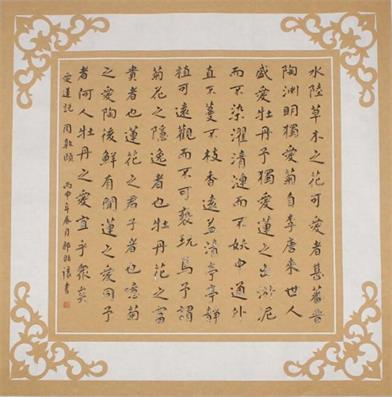 水陸草木之花可愛者甚蕃晉
陶淵明獨愛菊自李唐來世人
盛愛牡丹予獨愛蓮之出淤泥
而不染濯清漣而不妖中通外
直不蔓不枝香遠益清亭亭靜
植可遠觀而不可褻玩焉予謂
菊花之隱逸者也牡丹花之富
貴者也蓮花之君子者也噫菊
之愛陶後鮮有聞蓮之愛同予
者何人牡丹之愛宜乎衆矣
愛蓮說 周敦頤 丙申年春月 書